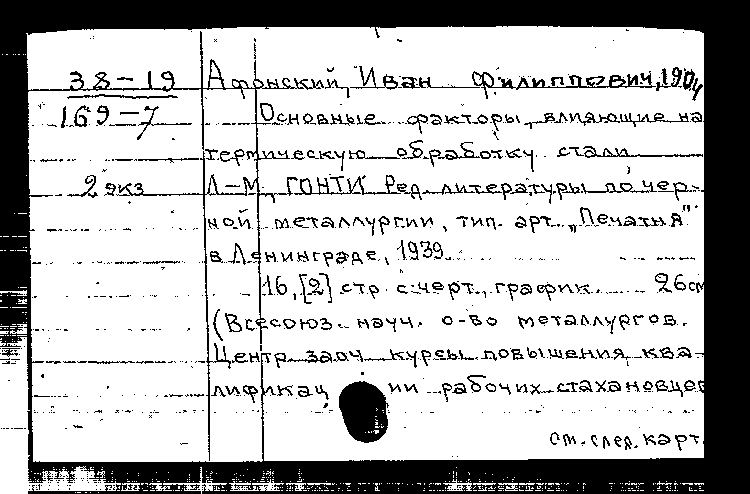 38-19 Афонский, Иван Филиппович, 1904
169-7 Основные факторы, влияющие на
термическую обработку стали
2 экз Л-М, ГОНТИ Ред. литературы по чер-
ной металлургии, тип. арт. „Печатня"
в Ленинграде, 1939.
16, [2] стр. с черт., график. 26 см
(Всесоюз. науч. о-во металлургов.
Центр. заоч. курсы повышения ква-
лификац ии рабочих стахановцев
см. след. карт.